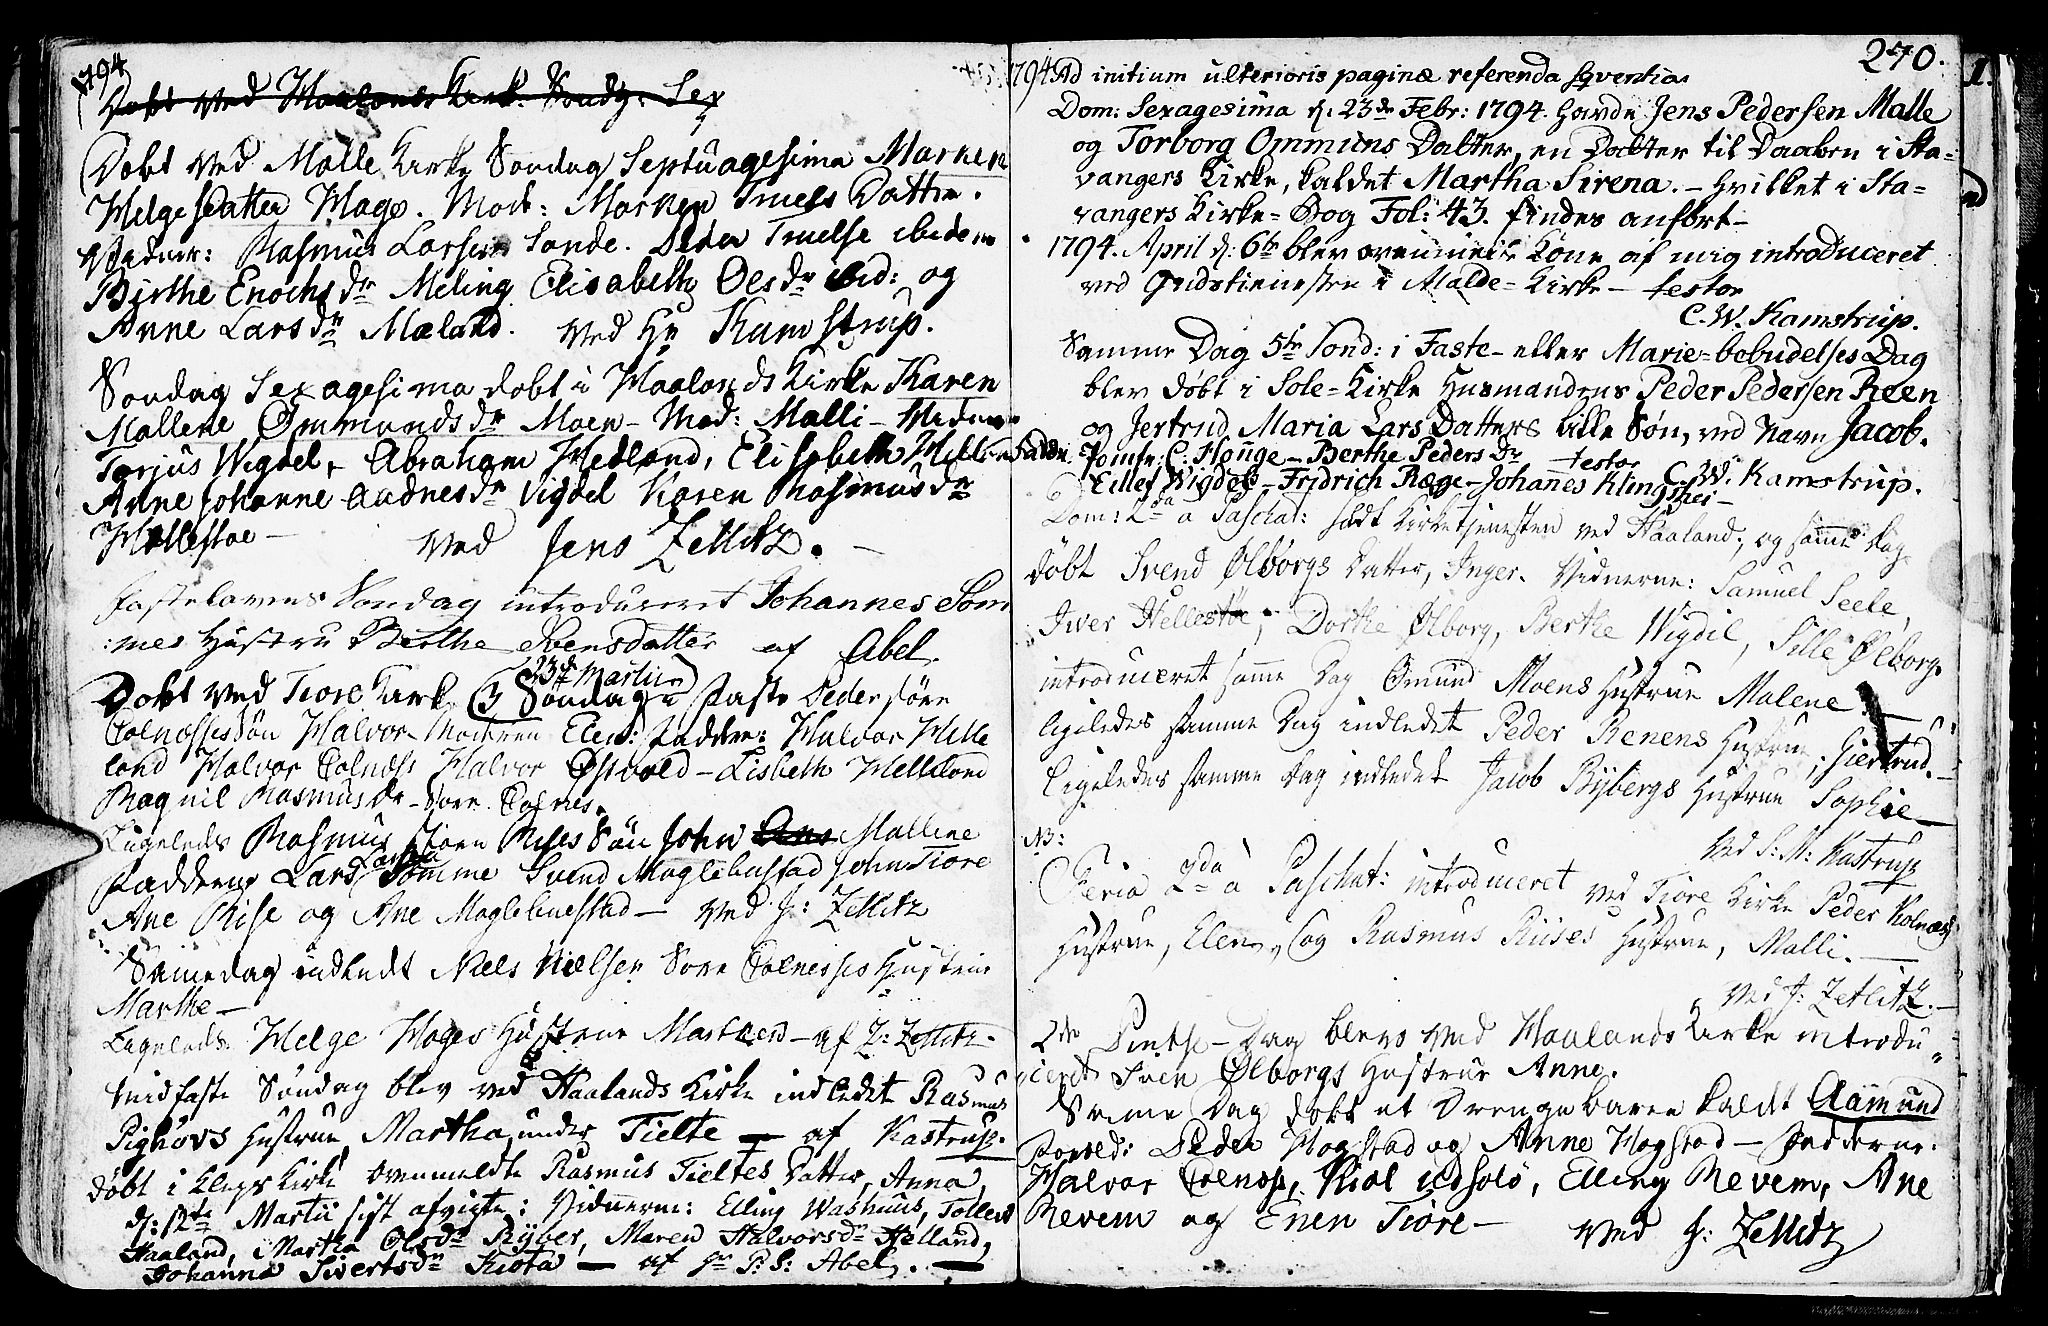 1794
Døbt ved Haalands Kirk. Sondg. Sex
Døbt ved Malle Kirke Søndag Septuagesima Marken
Helgesdatter Hage. Mod: Marken Truels Datter.
Vidner: Rasmus Larsen Sande. Peder Truelse ibidem
Birthe Enochs dr Meling Elisabeth Oles dr ibid: og
Anne Lars dr Mæland. ved Hr Kamstrup.
Søndag Sexagesima døbt i Haalands Kirke Karen
Mallene Ommunds dr Moen - Mod: Malli - Vidner
Torjus Wigdel, Abraham Medland, Elisabeth
Anne Johanne Aadnes dr Vigdel Karen Rasmus dr
Hellestøe -
ved Jens Zetlitz. -
Fastelavens Søndag introduceret Johannes Som
:mes Hustru Berthe Svensdatter af Abel.
23de Martii
Døbt ved Tiore Kirke (3 Søndag i Faste Peder Søre
Colnesses Søn Halvor - Moderen Elen: Fadder: Halvor Helle
land Halvor Colnes Halvor Østvold - Lisbeth Helleland
Ragnil Rasmus Dr - Sore Colnes.
Ligeledes Rasmus Rises Søn John Mallene
Fadderne Lars Larsen Somme Svend Maglebustad John Tiore
Ane Rise og Ane Maglebuestad - ved J: Zetlitz
Samedag indledt Niels Nielsen Sore Colnesses Hustrue
Marthe -
Ligeleds: Helge Hages Hustrue Marken - af J: Zetlitz -
Midfaste Søndag blev ved Haalands Kirke indledet Rasmus
Pighovs Hustrue Martha, under Tielte - af Kastrup.
døbt i Kleps Kirke ovenmeldte Rasmus Tieltes Datter, Anna,
d: 12te Martii sist afvigte; Vidnerne: Elling Washuus, Tolleiv
Haaland, Martha Ols dr Ryber, Maren Halvors dr Helland,
Johanna Siverts dr Kiota - af Hr P: S: Abel. -
270.
1794 Ad initium ulterioris paginæ referenda seqventia
Dom: Sexagesima d. 23de Febr: 1794. havde Jens Pedersen Malle
og Torborg Ommuns Datter, en Datter til Daaben i Sta=
vangers Kirke, kaldet Martha Sirena. - Hvilket i Sta=
vangers Kirke=Bog Fol: 43. findes anført -
1794. April d. 6te blev Kone af mig introduceret
ved Gudstienesten i Malde=Kirke - testor
C. W. Kamstrup.
Samme Dag 5te Sond: i Faste - eller Marie=bebudelses Dag
blev døbt i Sole=Kirke Husmandens Peder Pedersen Reen
og Jertrud Maria Lars Datters lille Søn, ved Navn Jacob.
Jomfr: C: Houge - Berthe Peders Dr testor C. W. Kamstrup.
Eilef Wigdel - Fridrich Ræge - Johannes Klingshei -
Dom: 2da a Paschat: holdt Kirketjenesten ved Haaland; og samme Dag
døbt Svend Ølborgs Datter, Inger. Vidnerne: Samuel Seele,
Iwer Hellestøe, Dorthe Ølborg, Berthe Wigdil, Sille Ølborg.
introduceret samme Dag Omund Moens Hustrue Malene. -
ligeledes samme Dag indledet Peder Renens Hustrue, Giertrud. -
Ligeledes samme Dag indledet Jacob Bybergs Hustrue Sophie -
Ved S: M: Kastrup
NB:
Feria 2da a Paschat: introduceret ved Tiore Kirke Peder Kolnes
Hustrue, Elen, (og Rasmus Riises Hustrue, Malli. -
ved J: Zetlitz. -
2den Pintse-Dag blev ved Haalands Kirke introdu=
ceret Sven Ølborgs Hustrue Anne.
Same Dag døbt et Drengebarn kaldt Aamund
Foreld: Peder Hogstad og Anne Hogstad - Fadderne:
Halvor Colnes, Kiol Udsolo, Elling Revem, Ane
Revem og Enen Tiore -
ved J: Zetlitz